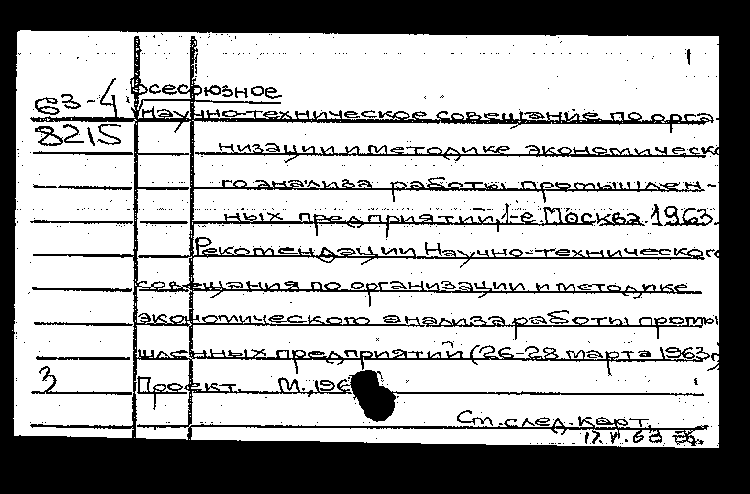 1
Всесоюзное
63-4 научно-техническое совещание по орга-
8215 низации и методике экономическо
го анализа работы промышлен-
ных предприятий, 1-е. Москва. 1963.
Рекомендации Научно-технического
совещания по организации и методике
экономического анализа работы промы
шленных предприятий (26-28 марта 1963г)
3 Проект. М., 196
Ст. след. карт.